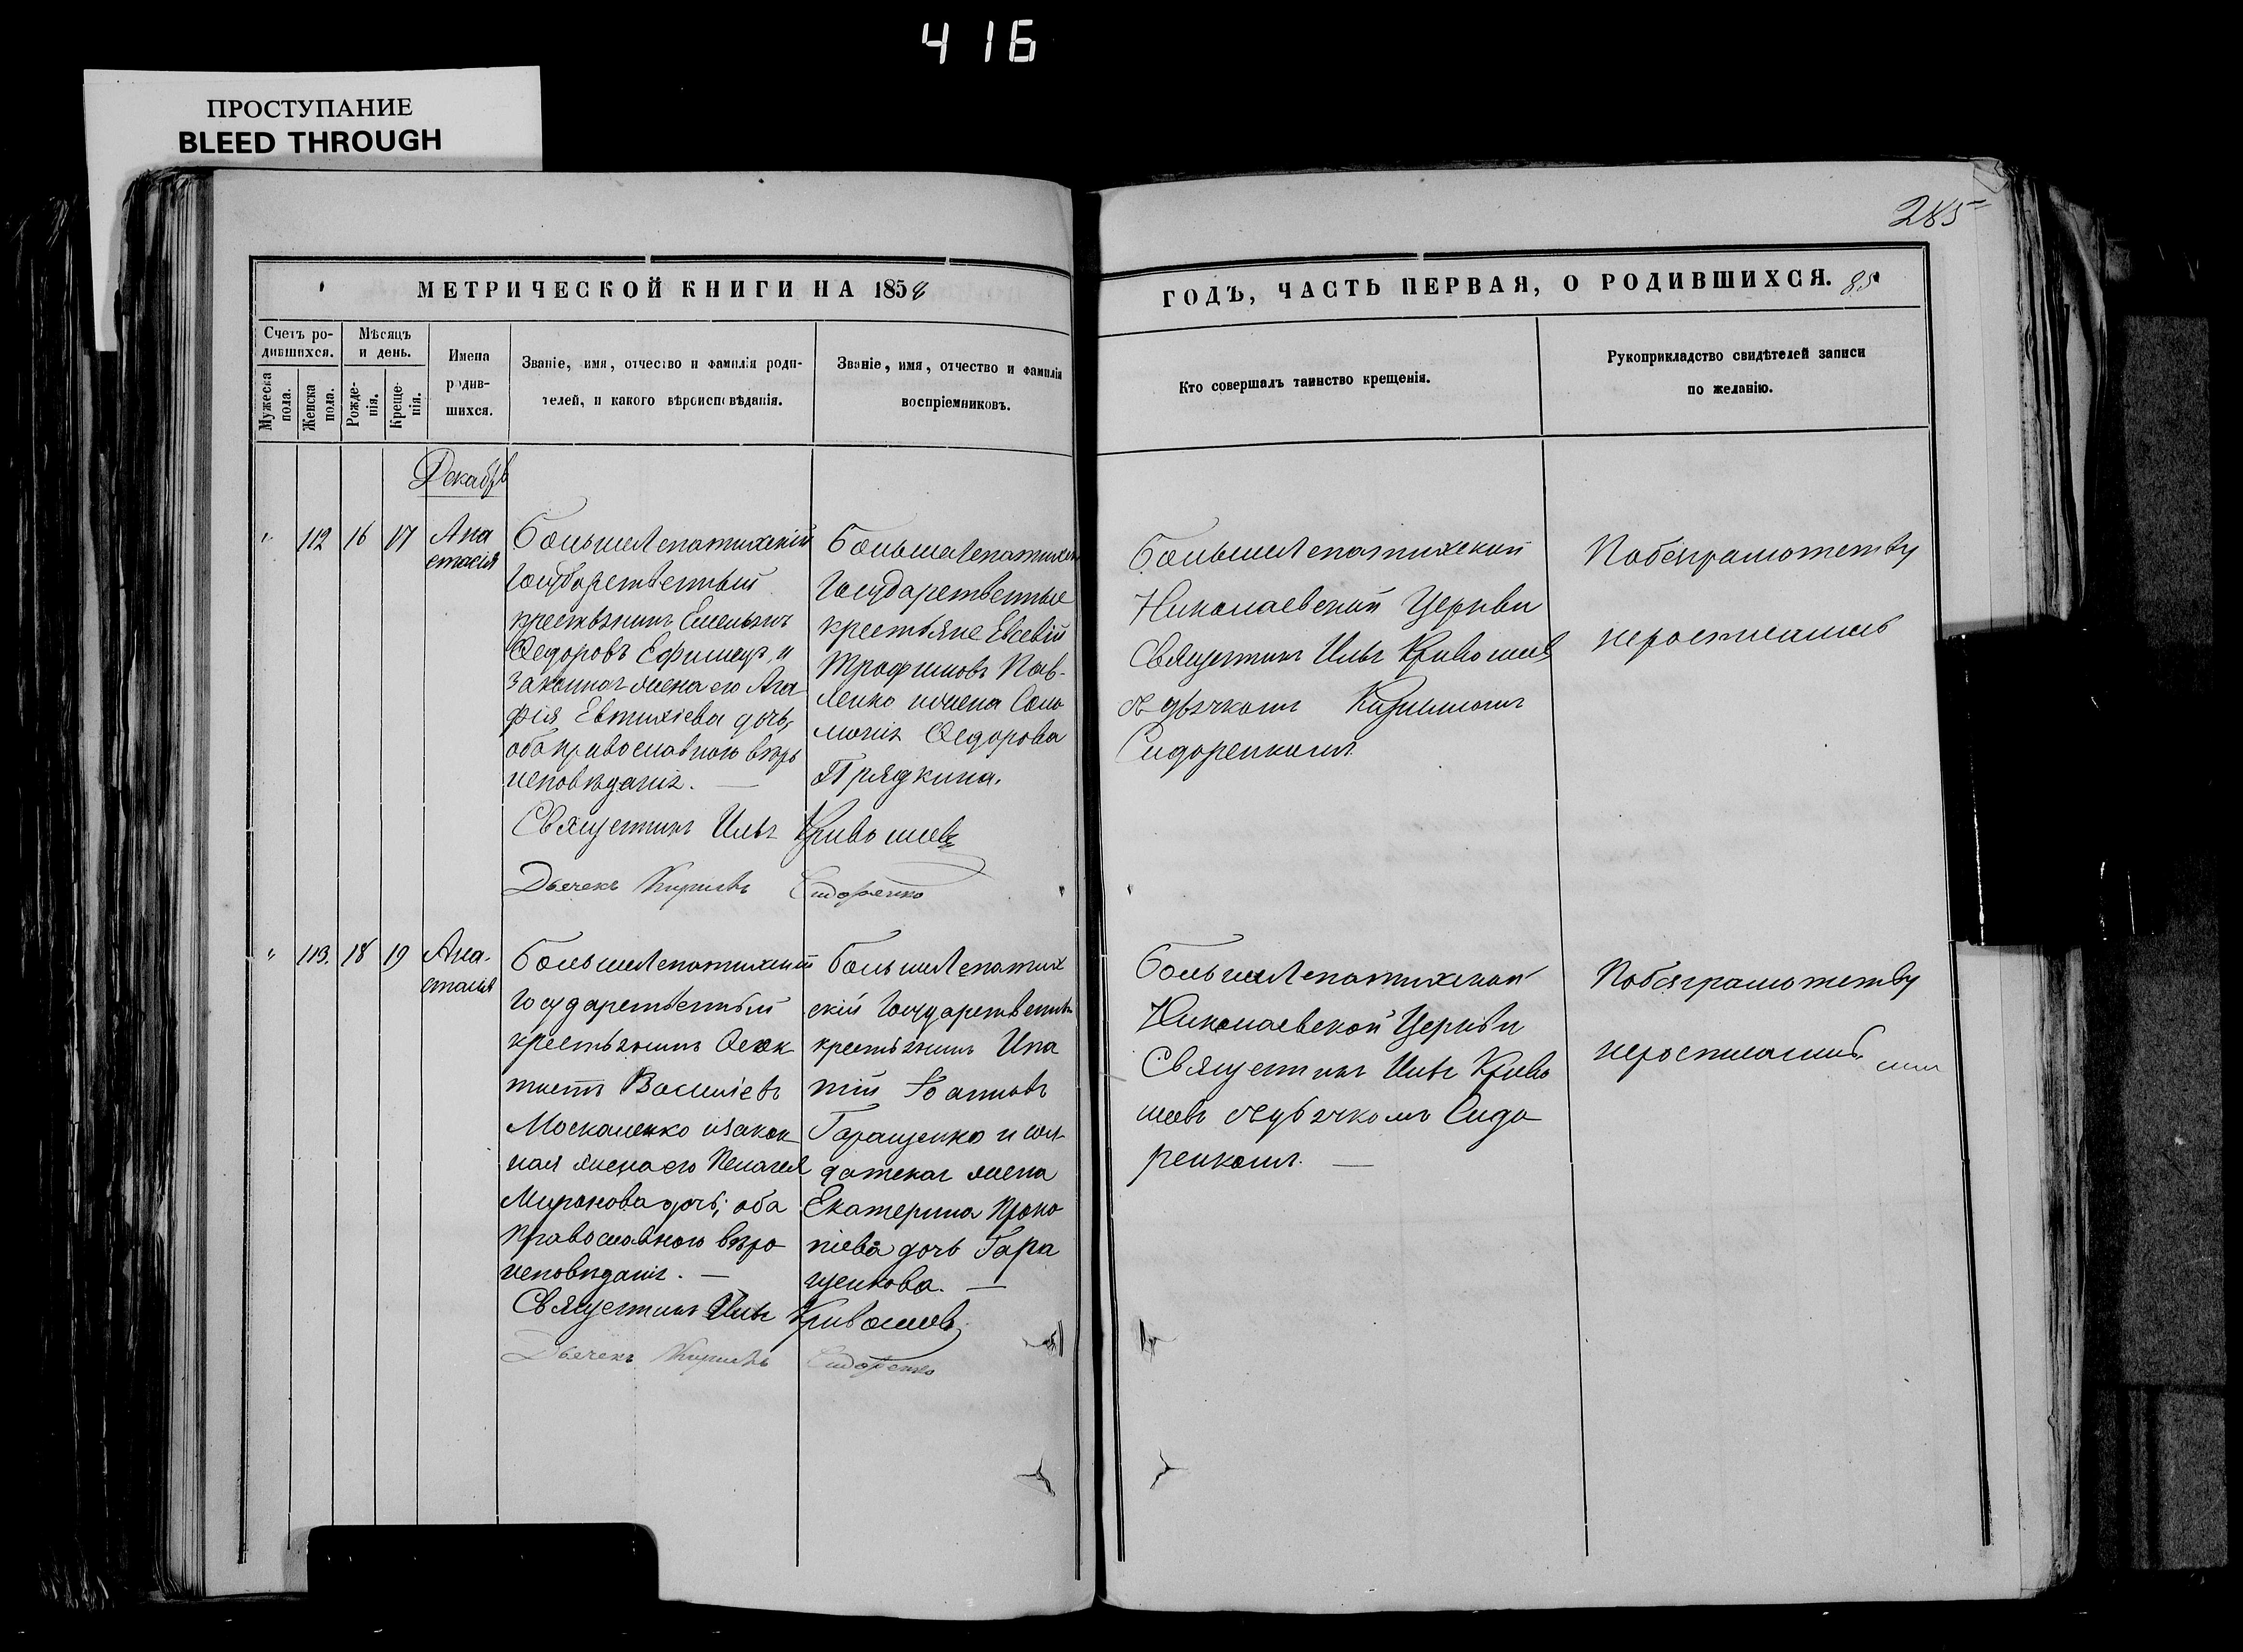 416
ПРОСТУПАНИЕ
BLEED THROUGH
285
МЕТРИЧЕСКОЙ КНИГИ НА 1858
ГОДЪ, ЧАСТЬ ПЕРВАЯ, О РОДИВШИХСЯ. 85
Счетъ ро-
дившихся.
Мужеска
пола.
Женска
пола.
Мѣсяцъ
и день.
Рожде-
нія.
Креще-
нія.
Имена
родив-
шихся.
Званіе, имя, отчество и фамилія роди-
телей, и какого вѣроисповѣданія.
Званіе, имя, отчество и фамилія
воспріемниковъ.
Кто совершалъ таинство крещенія.
Рукоприкладство свидѣтелей записи
по желанію.
Декабрь
" 112 16 17
Ана
стасія
Большелепатихскій
Государственный
крестьянинъ Емельянъ
Ѳедоровъ Ефимецъ, и
законная жена его Ага
фія Евтихіева дочь,
оба православного вѣро
исповѣданія. —
Большелепатихскіе
Государственные
крестьяне Евсевій
Трофимовъ Пав-
ленко и жена Соло
монія Ѳедорова
Прядкина.
Священникъ Илья Кривошеевъ
Дьячекъ Кирилъ Сидоренко
Большелепатихской
Николаевской Церкви
Священникъ Илья Кривошеевъ
съ дьячкомъ Кириломъ
Сидоренкомъ.
По безграмотству
не росписались
" 113. 18 19
Ана-
стасія
Большелепатихскій
Государственный
крестьянинъ Ѳеок
тистъ Василіевъ
Москаленко и закон
ная жена его Пелагея
Миронова дочь; оба
православного вѣро
исповѣданія. —
Большелепатих
скій Государственный
крестьянинъ Ипа
тій Іоанновъ
Гаращенко и сол-
датская жена
Екатерина Проко
піева дочь Гара
щенкова. —
Священникъ Илья Кривошеевъ
Дьячекъ Кирилъ Сидоренко
Большелепатихской
Николаевской Церкви
Священникъ Илья Криво
шеевъ съ дьячкомъ Сидо
ренкомъ. —
По безграмотству
не росписались